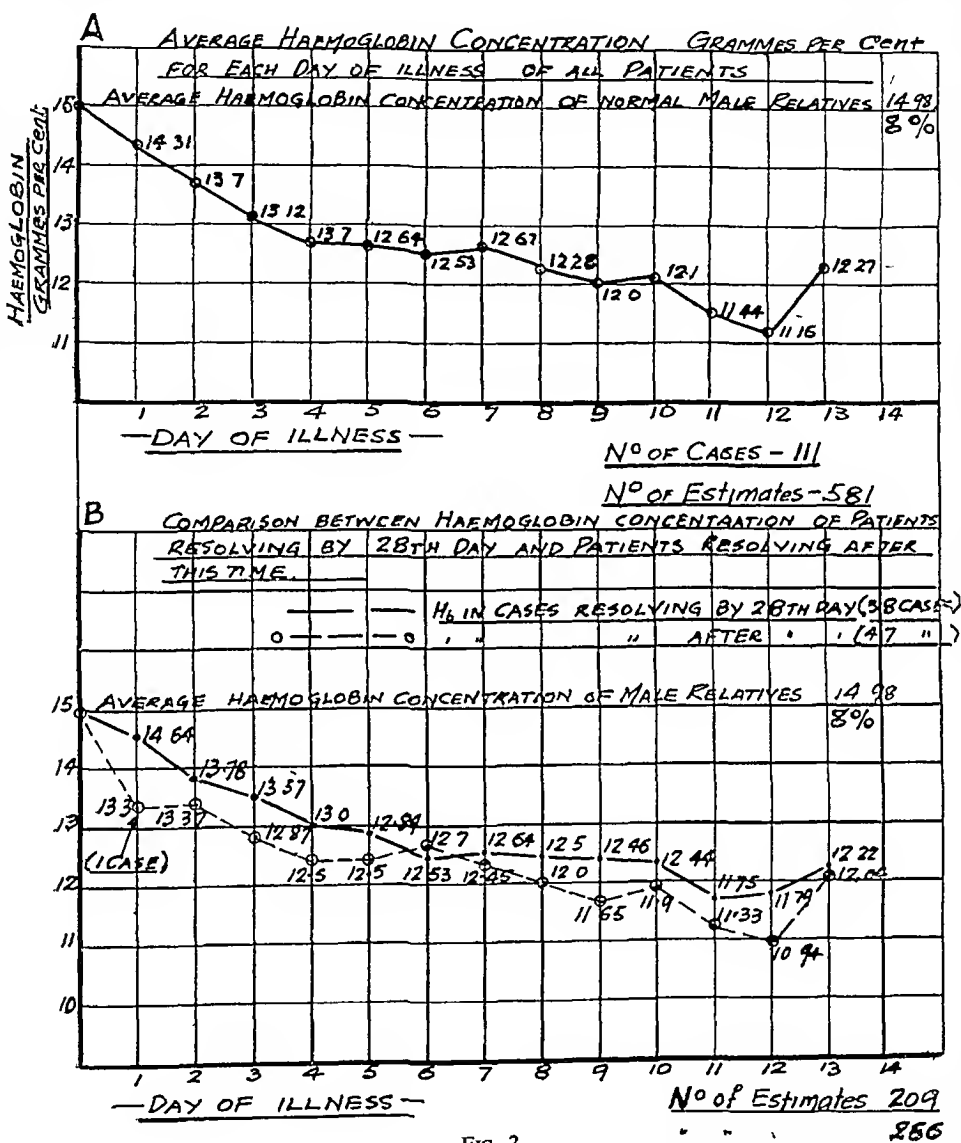 A
AVERAGE HAEMOGLOBIN CONCENTRATION GRAMMES PER Cent
FOR EACH DAY OF ILLNESS OF ALL PATIENTS
AVERAGE HAEMOGLOBIN CONCENTRATION OF NORMAL MALE RELATIVES 14 98
8%
HAEMOGLOBIN
GRAMMES PER Cent
15
14
13
12
11
14 31
13 7
13 12
13 7
12 64
12 53
12 67
12 28
12 0
12 1
11 44
11 16
12 27
1 2 3 4 5 6 7 8 9 10 11 12 13 14
—DAY OF ILLNESS—
No OF CASES - 111
No OF Estimates - 581
B
COMPARISON BETWEEN HAEMOGLOBIN CONCENTRATION OF PATIENTS
RESOLVING BY 28TH DAY AND PATIENTS RESOLVING AFTER
THIS TIME.
Hb IN CASES RESOLVING BY 28TH DAY (38 CASES)
" " " AFTER " " (47 ")
AVERAGE HAEMOGLOBIN CONCENTRATION OF MALE RELATIVES 14 98
8%
15
14
13
12
11
10
14 64
13.78
13.57
13.0
12.84
12.53
12 64
12 5
12 46
12 44
11 75
11 79
12 22
13.3
(1 CASE)
13.37
12.87
12.5
12.5
12.7
12.45
12.0
11.65
11.9
11.33
10 94
1 2 3 4 5 6 7 8 9 10 11 12 13 14
—DAY OF ILLNESS—
No of Estimates 209
" " "
FIG. 2